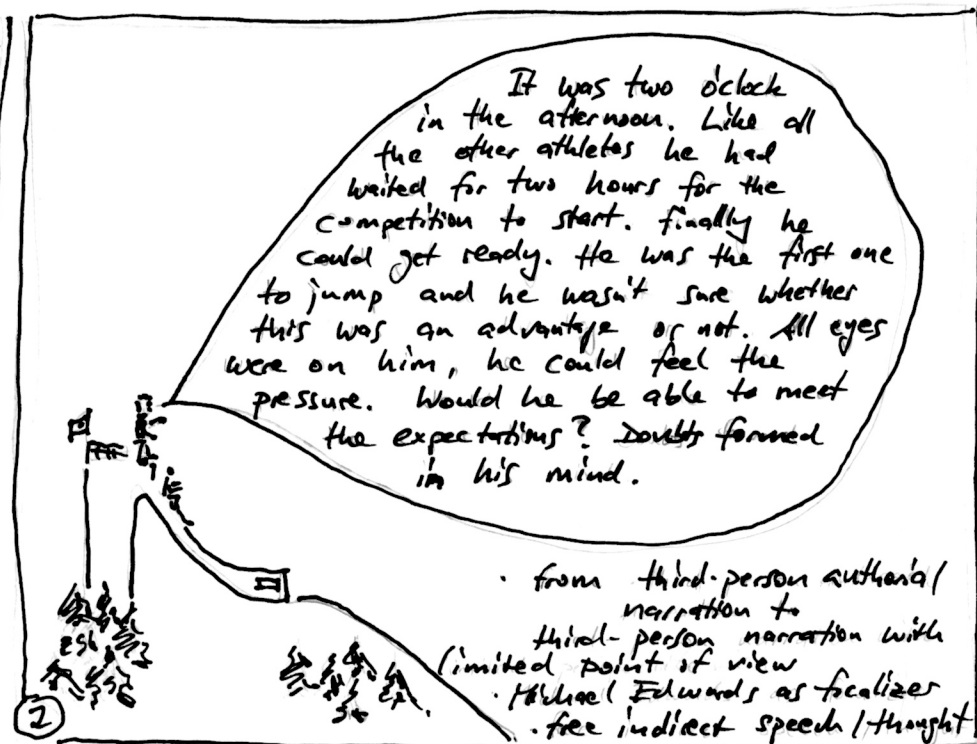 It was two o'clock
in the afternoon. Like all
the other athletes he had
waited for two hours for the
competition to start. Finally he
could get ready. He was the first one
to jump and he wasn't sure whether
this was an advantage or not. All eyes
were on him, he could feel the
pressure. Would he be able to meet
the expectations? Doubts formed
in his mind.
· from third-person authorial
narration to
third-person narration with
limited point of view
· Michael Edwards as focalizer
· free indirect speech/thought
2